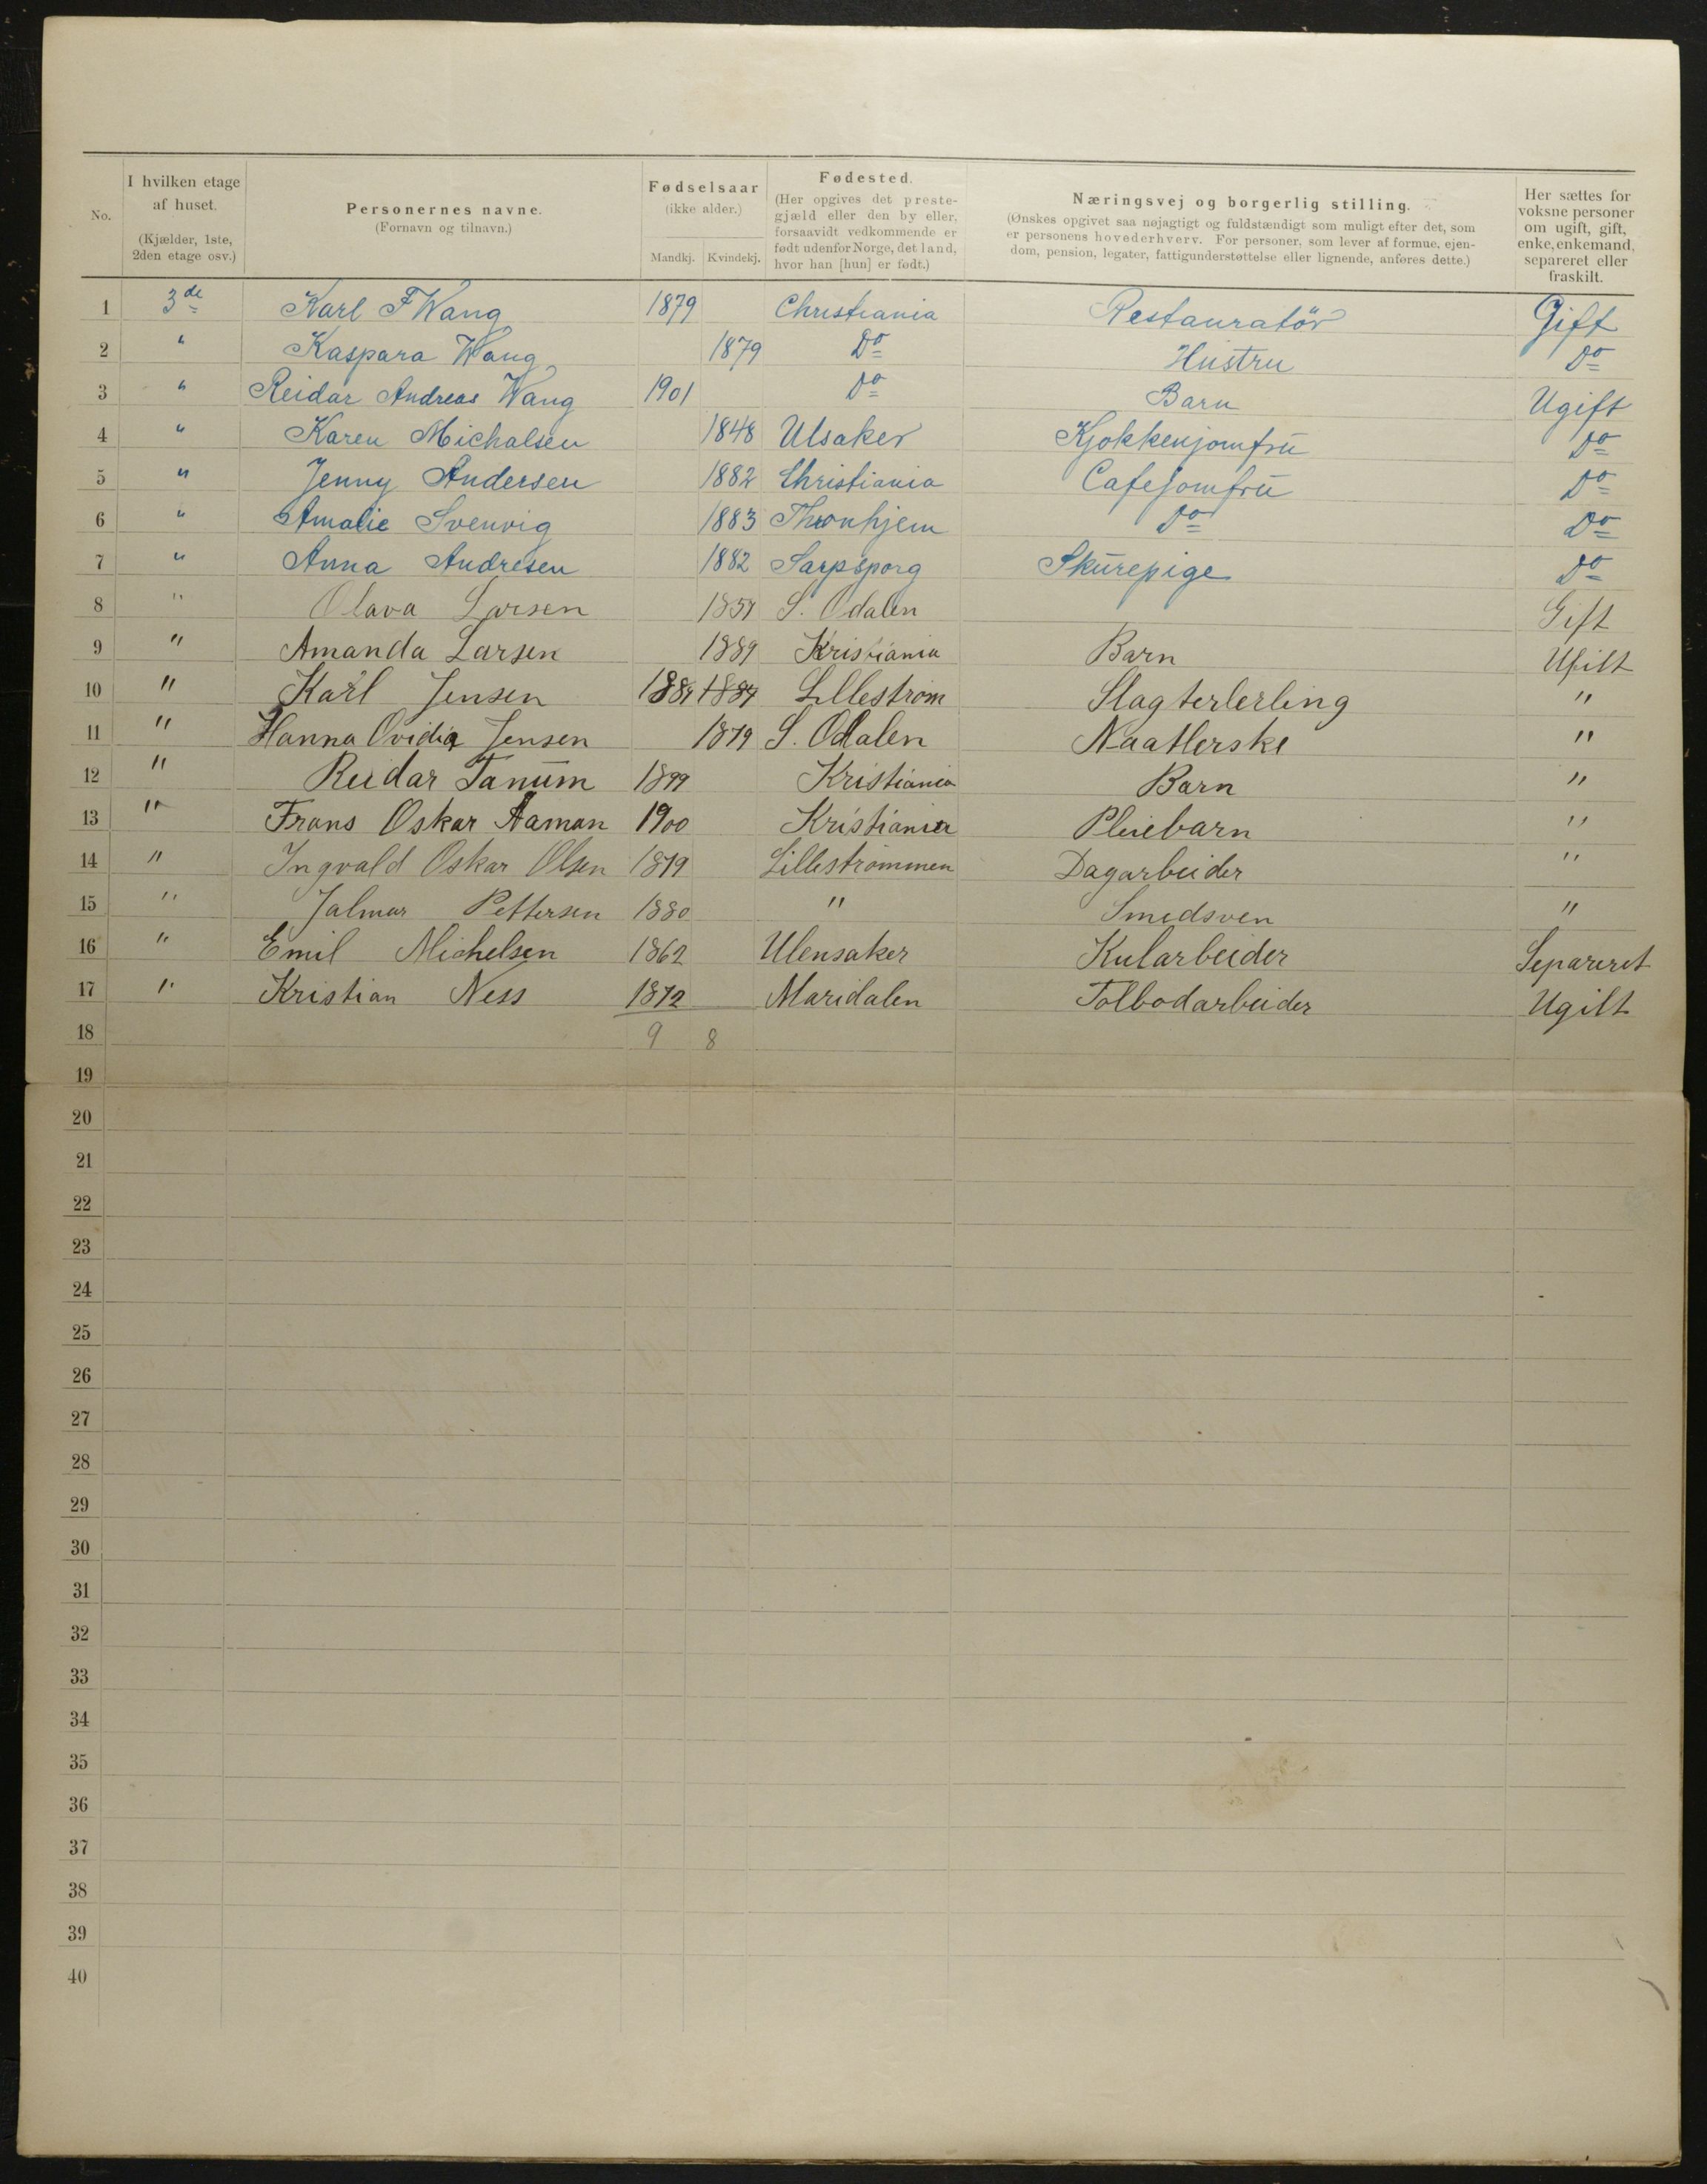 No.
I hvilken etage af huset. (Kjælder, 1ste, 2den etage osv.)
Personernes navne. (Fornavn og tilnavn.)
Fødselsaar (ikke alder.) Mandkj. Kvindekj.
Fødested. (Her opgives det prestegjæld eller den by eller, forsaavidt vedkommende er født udenfor Norge, det land, hvor han [hun] er født.)
Næringsvej og borgerlig stilling. (Ønskes opgivet saa nøjagtigt og fuldstændigt som muligt efter det, som er personens hovederhverv. For personer, som lever af formue, ejendom, pension, legater, fattigunderstøttelse eller lignende, anføres dette.)
Her sættes for voksne personer om ugift, gift, enke, enkemand, separeret eller fraskilt.
1 3de Karl F Wang 1879 Christiania Restauratör Gift
2 " Kaspara Wang 1879 Do Hustru Do
3 " Reidar Andreas Wang 1901 Do Barn Ugift
4 " Karen Michalsen 1848 Ulsaker Kjøkkenjomfru Do
5 " Jenny Andersen 1882 Christiania Cafejomfru Do
6 " Amalie Svenvig 1883 Thronhjem Do Do
7 " Anna Andresen 1882 Sarpsporg Skurepige Do
8 " Olava Larsen 1857 S. Odalen Gift
9 " Amanda Larsen 1889 Kristiania Barn Ufilt
10 " Karl Jensen 1884 1884 Lillestrøm Slagterlerling "
11 " Hanna Ovidia Jensen 1879 S. Odalen Naatlerske "
12 " Reidar Tanum 1899 Kristiania Barn "
13 " Frans Oskar Aaman 1900 Kristiania Pleiebarn "
14 " Ingvald Oskar Olsen 1879 Lillestrømmen Dagarbeider "
15 " Jalmar Pettersen 1880 " Smedsven "
16 " Emil Michelsen 1862 Ulensaker Kularbeider Separeret
17 " Kristian Ness 1872 Maridalen Tolbodarbeider Ugilt
18 9 8
19
20
21
22
23
24
25
26
27
28
29
30
31
32
33
34
35
36
37
38
39
40